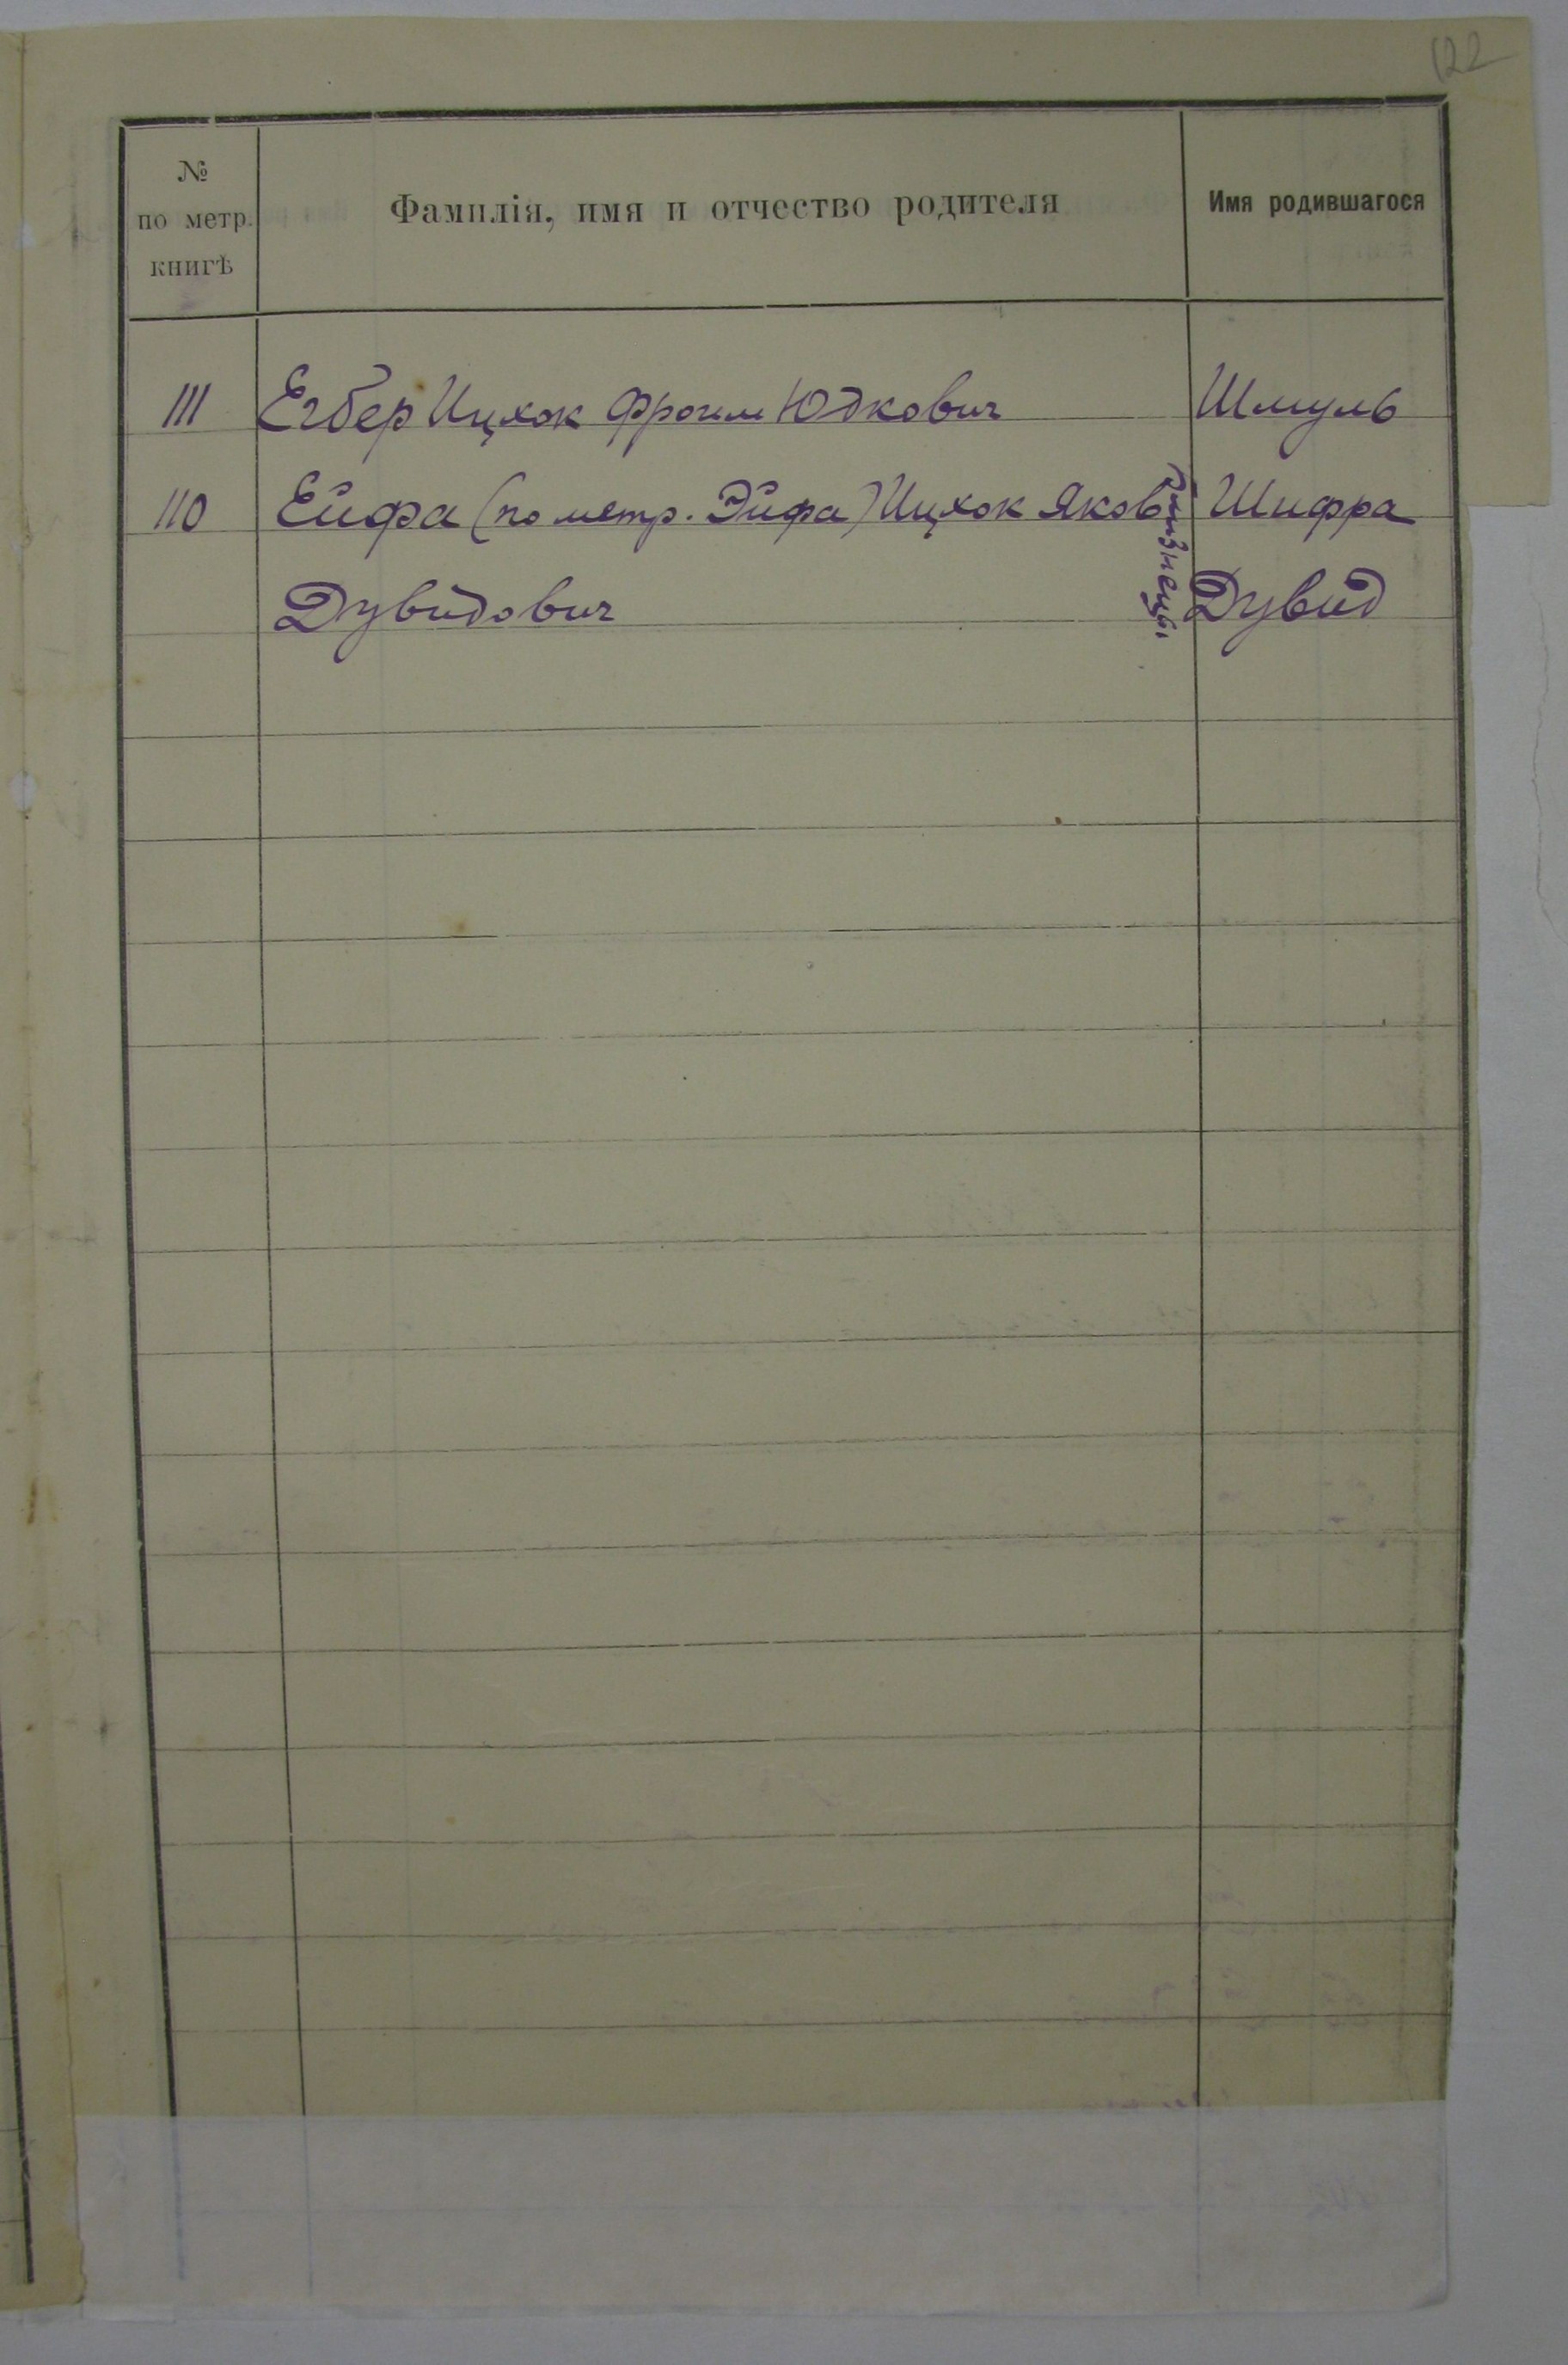 122
№ по метр. книгѣ
Фамилія, имя и отчество родителя
Имя родившагося
111 Егбер Ицхок Фроим Юдкович Шмуль
110 Ейфа (по метр. Эйфа) Ицхок Яков Шифра
близнецы
Дувидович Дувид